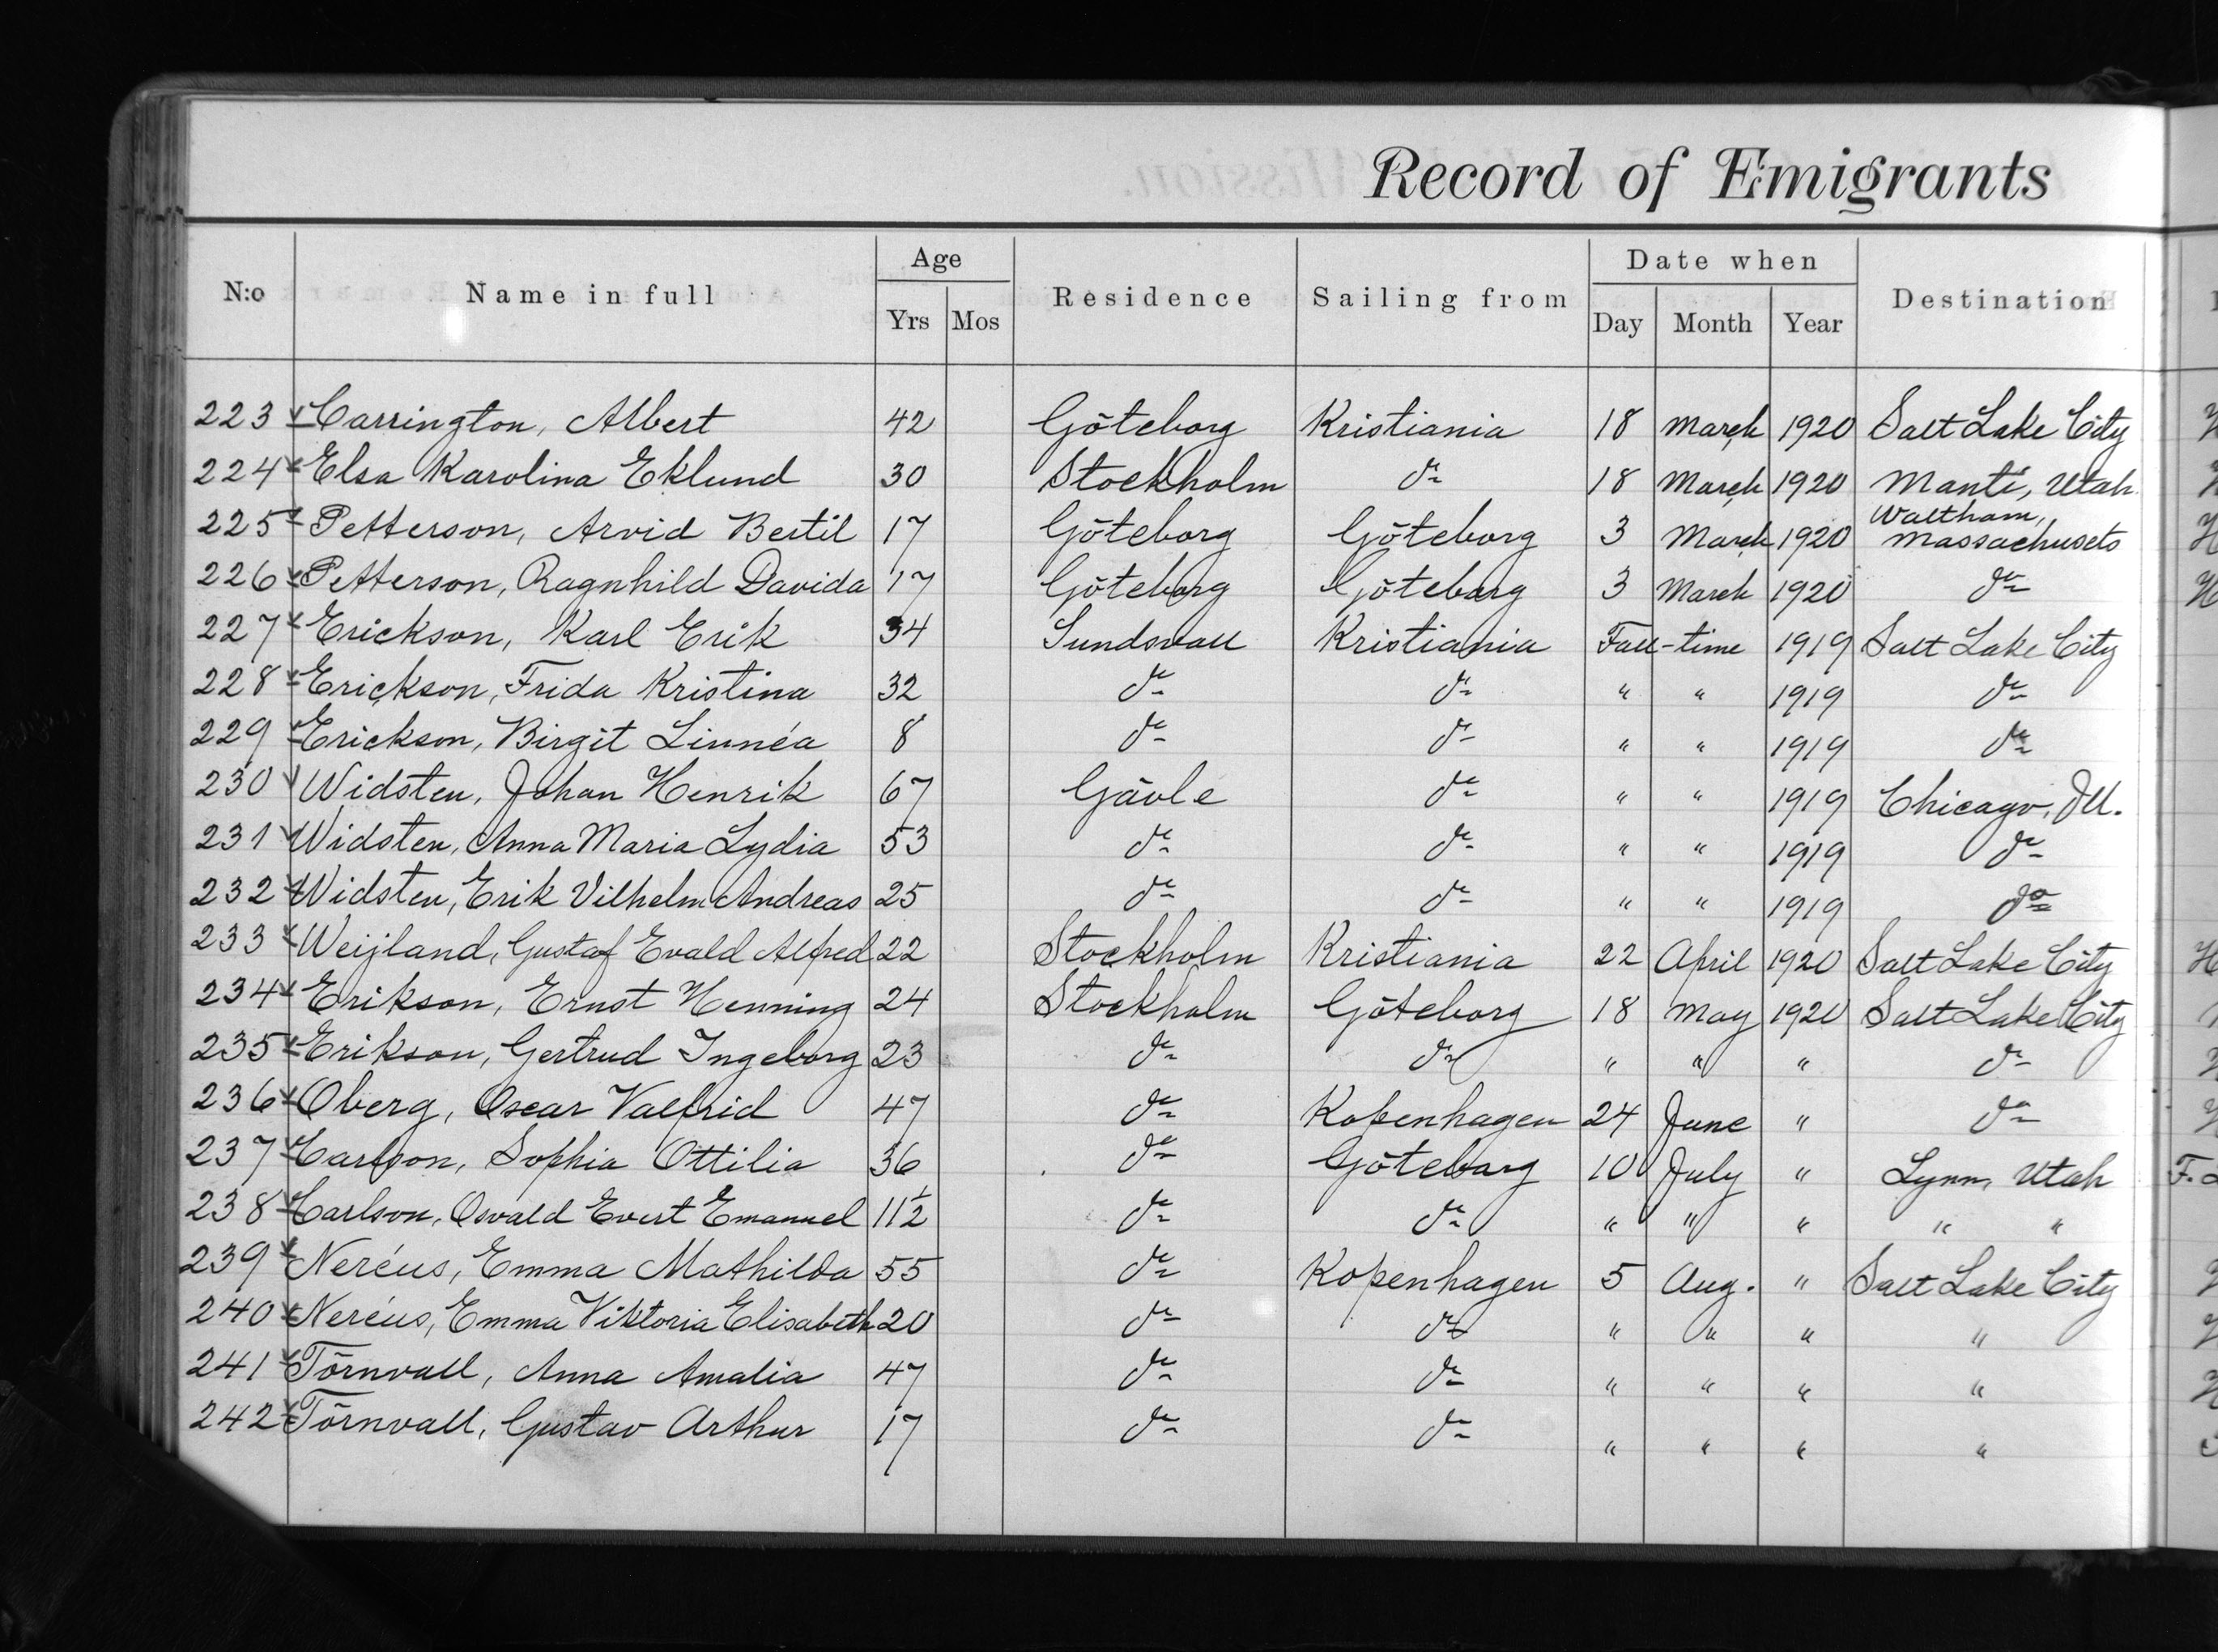 Record of Emigrants
N:o Name in full Age Residence Sailing from Date when Destination
Yrs Mos Day Month Year
223 Carrington, Albert 42 Göteborg Kristiania 18 March 1920 Salt Lake City
224 Elsa Karolina Eklund 30 Stockholm do 18 March 1920 Manti, Utah.
225 Petterson, Arvid Bertil 17 Göteborg Göteborg 3 March 1920 Waltham, Massachusets
226 Petterson, Ragnhild Davida 17 Göteborg Göteborg 3 March 1920 do
227 Erickson, Karl Erik 34 Sundsvall Kristiania Fall-time 1919 Salt Lake City
228 Erickson, Frida Kristina 32 do do " " 1919 do
229 Erickson, Birgit Linnéa 8 do do " " 1919 do
230 Widsten, Johan Henrik 67 Gävle do " " 1919 Chicago, Ill.
231 Widsten, Anna Maria Lydia 53 do do " " 1919 do
232 Widsten, Erik Vilhelm Andreas 25 do do " " 1919 do
233 Weijland, Gustaf Evald Alfred 22 Stockholm Kristiania 22 April 1920 Salt Lake City
234 Erikson, Ernst Henning 24 Stockholm Göteborg 18 May 1920 Salt Lake City
235 Erikson, Gertrud Ingeborg 23 do do " " " do
236 Oberg, Oscar Valfrid 47 do Kopenhagen 24 June " do
237 Carlson, Sophia Ottilia 36 do Göteborg 10 July " Lynn, Utah
238 Carlson, Osvald Evert Emanuel 11½ do do " " " " "
239 Neréus, Emma Mathilda 55 do Kopenhagen 5 Aug. " Salt Lake City
240 Neréus, Emma Viktoria Elisabeth 20 do do " " " "
241 Törnvall, Anna Amalia 47 do do " " " "
242 Törnvall, Gustav Arthur 17 do do " " " "